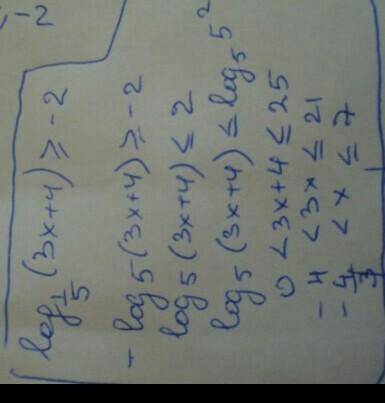 -2
log_{1/5}(3x+4) ≥ -2
-log₅(3x+4) ≥ -2
log₅(3x+4) ≤ 2
log₅(3x+4) ≤ log₅5²
0 < 3x+4 ≤ 25
-4 < 3x ≤ 21
-4/3 < x ≤ 7